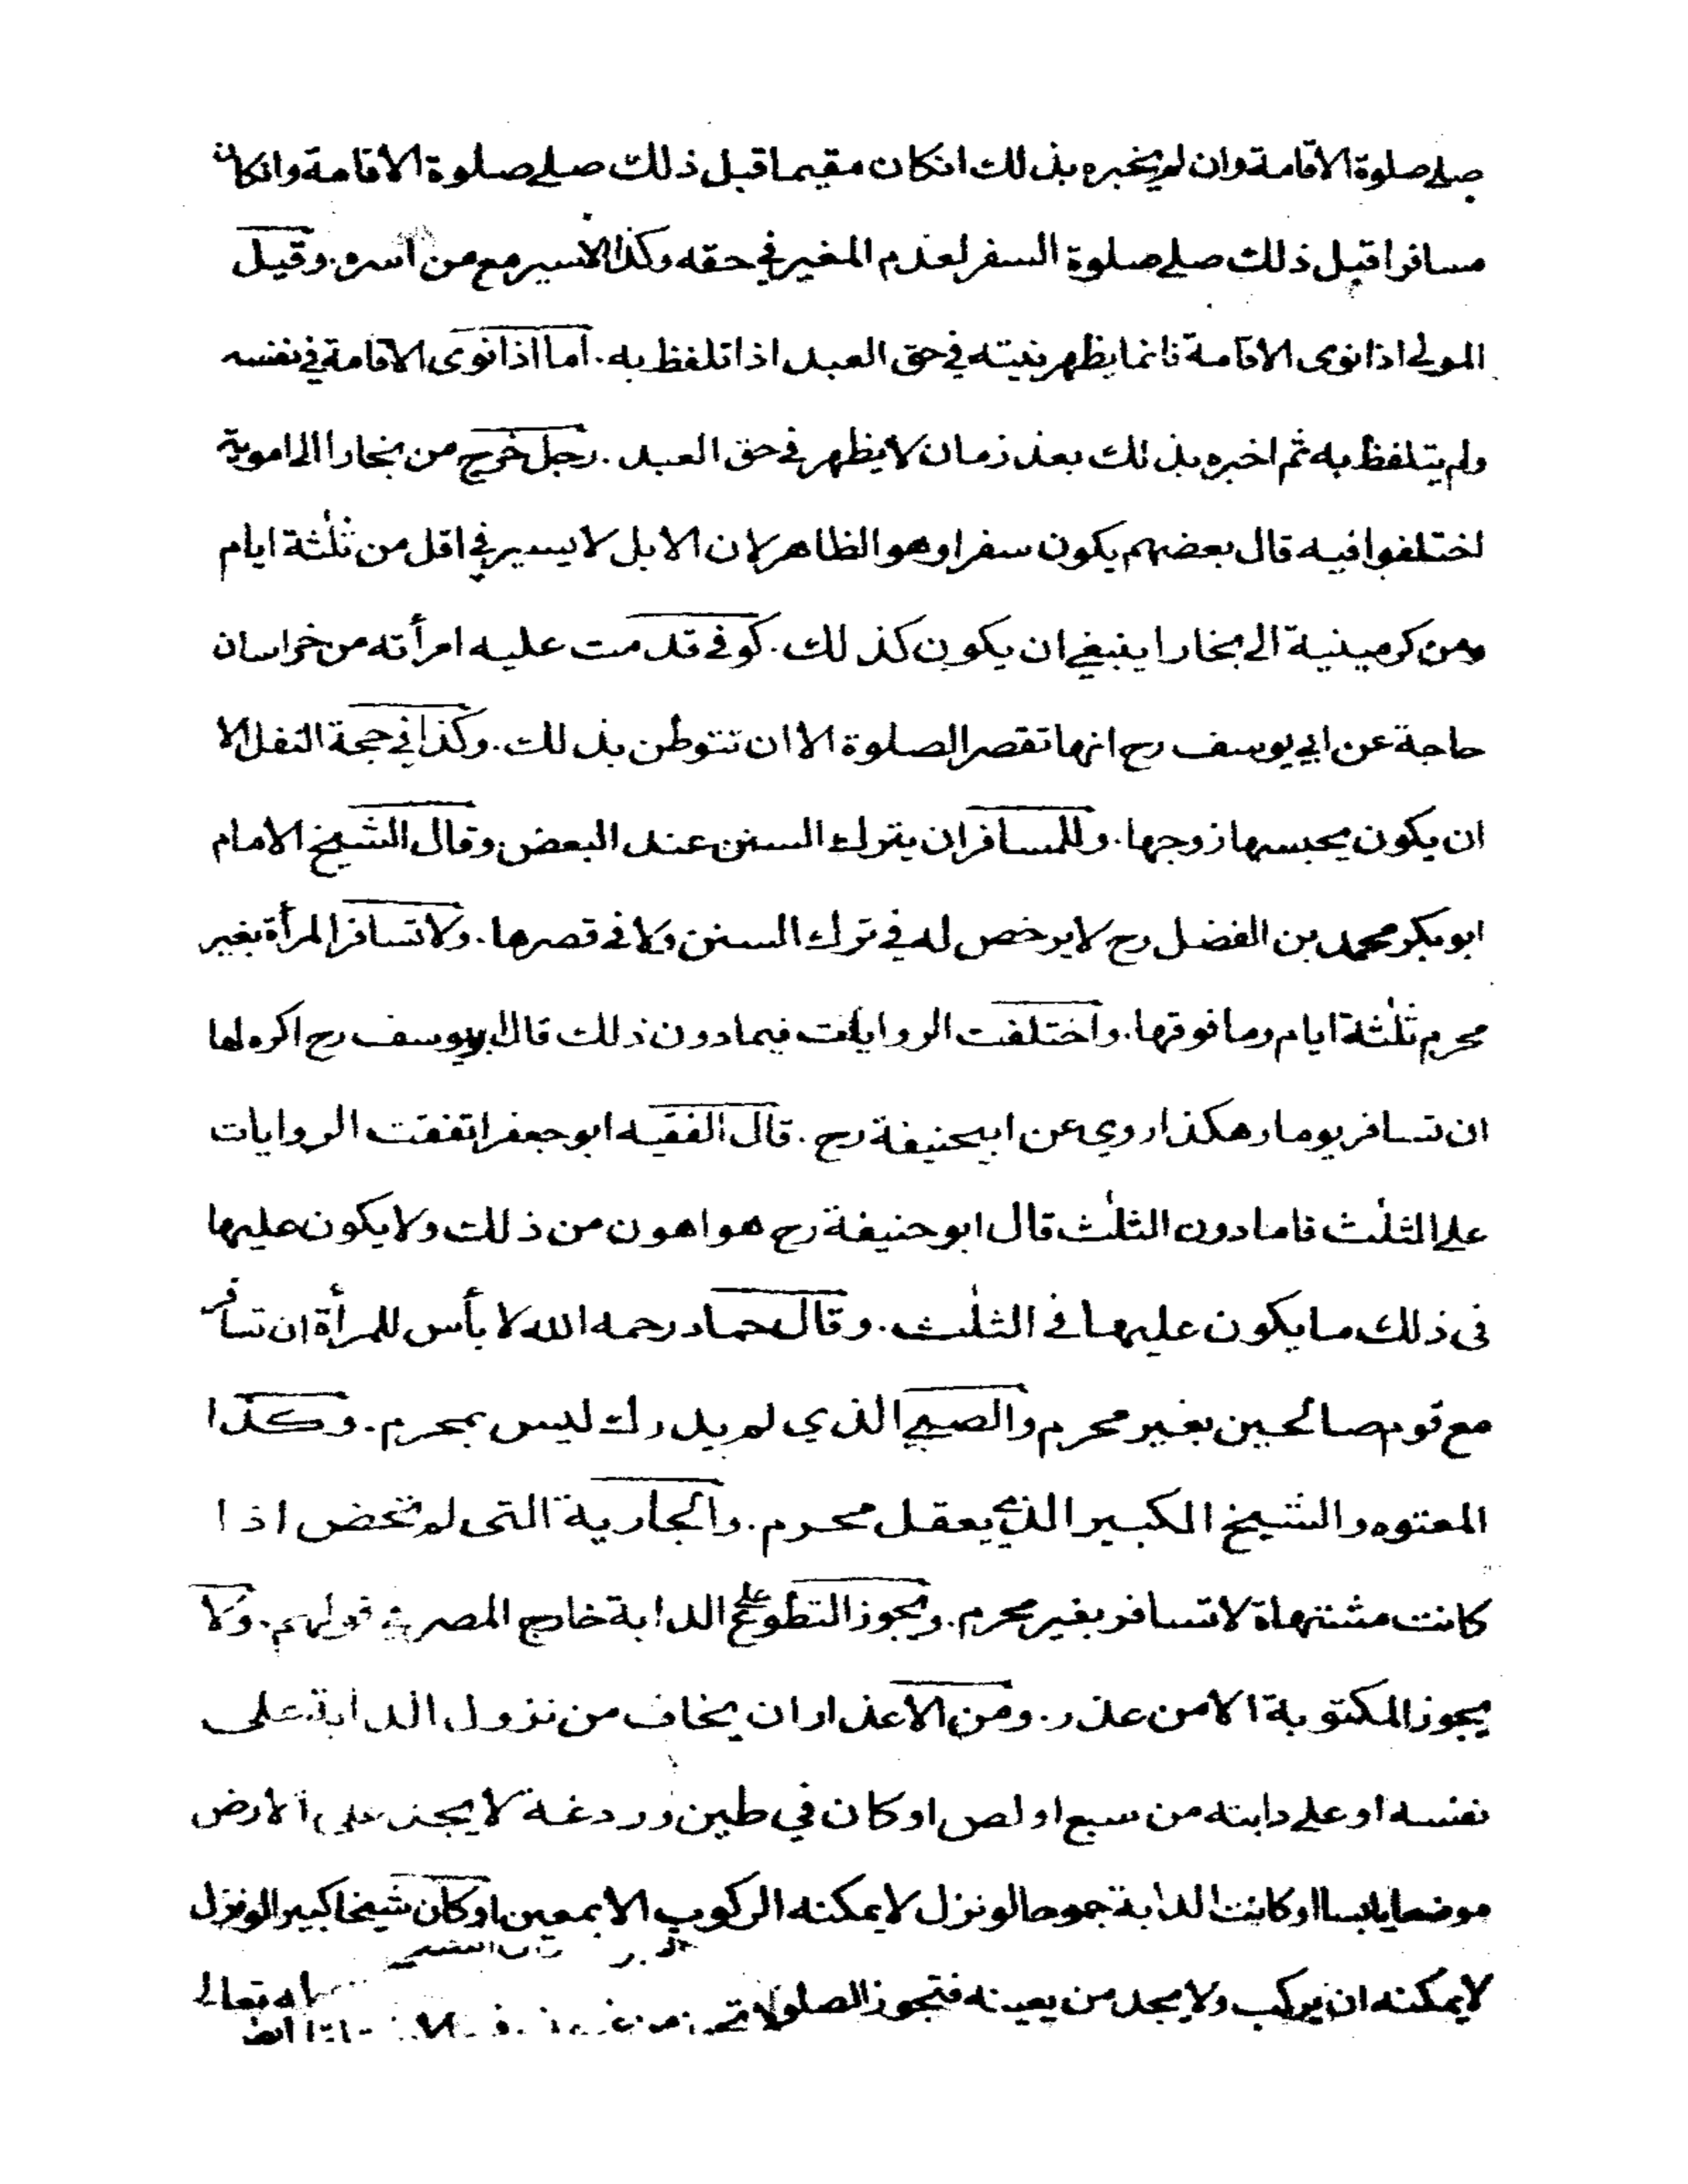 صلے صلوة الاقامة وان لم يخبره بذلك انكان مقيما قبل ذلك صلے صلوة الاقامة وانكان
مسافرا قبل ذلك صلے صلوة السفر لعدم المغير في حقه وكذا الاسير مع من اسره. وقيل
المولے اذا نوى الاقامة فانما يظهر نيته في حق العبد اذا تلفظ به. اما اذا نوى الاقامة في نفسه
ولم يتلفظ به ثم اخبره بذلك بعد زمان لا يظهر في حق العبد. رجل خرج من بخارا الى اموية
اختلفوا فيه قال بعضهم يكون سفرا وهو الظاهر لان الابل لا يسير في اقل من ثلٰثة ايام
ومن كرمينية الے بخارا ينبغے ان يكون كذلك. كوفے قدمت عليه امرأته من خراسان
حاجة عن ابي يوسف رح انها تقصر الصلوة الا ان تتوطن بذلك. وكذا في حجة النفل الا
ان يكون يحبسها زوجها. وللمسافر ان يترك السنن عند البعض وقال الشيخ الامام
ابو بكر محمد بن الفضل رح لا يرخص له في ترك السنن ولا فے قصرها. ولا تسافر المرأة بغير
محرم ثلٰثة ايام وما فوقها. واختلفت الروايات فيما دون ذلك قال ابو يوسف رح اكره لها
ان تسافر يوما وهكذا روي عن ابيحنيفة رح. قال الفقيه ابو جعفر اتفقت الروايات
علے الثلٰث فاما دون الثلٰث قال ابو حنيفة رح هو اهون من ذلك ولا يكون عليها
فى ذلك ما يكون عليها فے الثلٰث. وقال حماد رحمه الله لا بأس للمرأة ان تسافر
مع قوم صالحين بغير محرم والصبے الذي لم يدرك ليس بمحرم. وكذا
المعتوه والشيخ الكبير الذي يعقل محرم. والجارية التى لم تحض اذا
كانت مشتهاة لا تسافر بغير محرم. ويجوز التطوع علے الدابة خارج المصر في قولهم. ولا
يجوز المكتوبة الا من عذر. ومن الاعذار ان يخاف من نزول الدابة على
نفسه او علے دابته من سبع او لص او كان في طين وردغة لا يجد على الارض
موضعا يابسا او كانت الدابة جموحا لو نزل لا يمكنه الركوب الا بمعين او كان شيخا كبيرا لو نزل
لا يمكنه ان يركب ولا يجد من يعينه فتجوز الصلوة